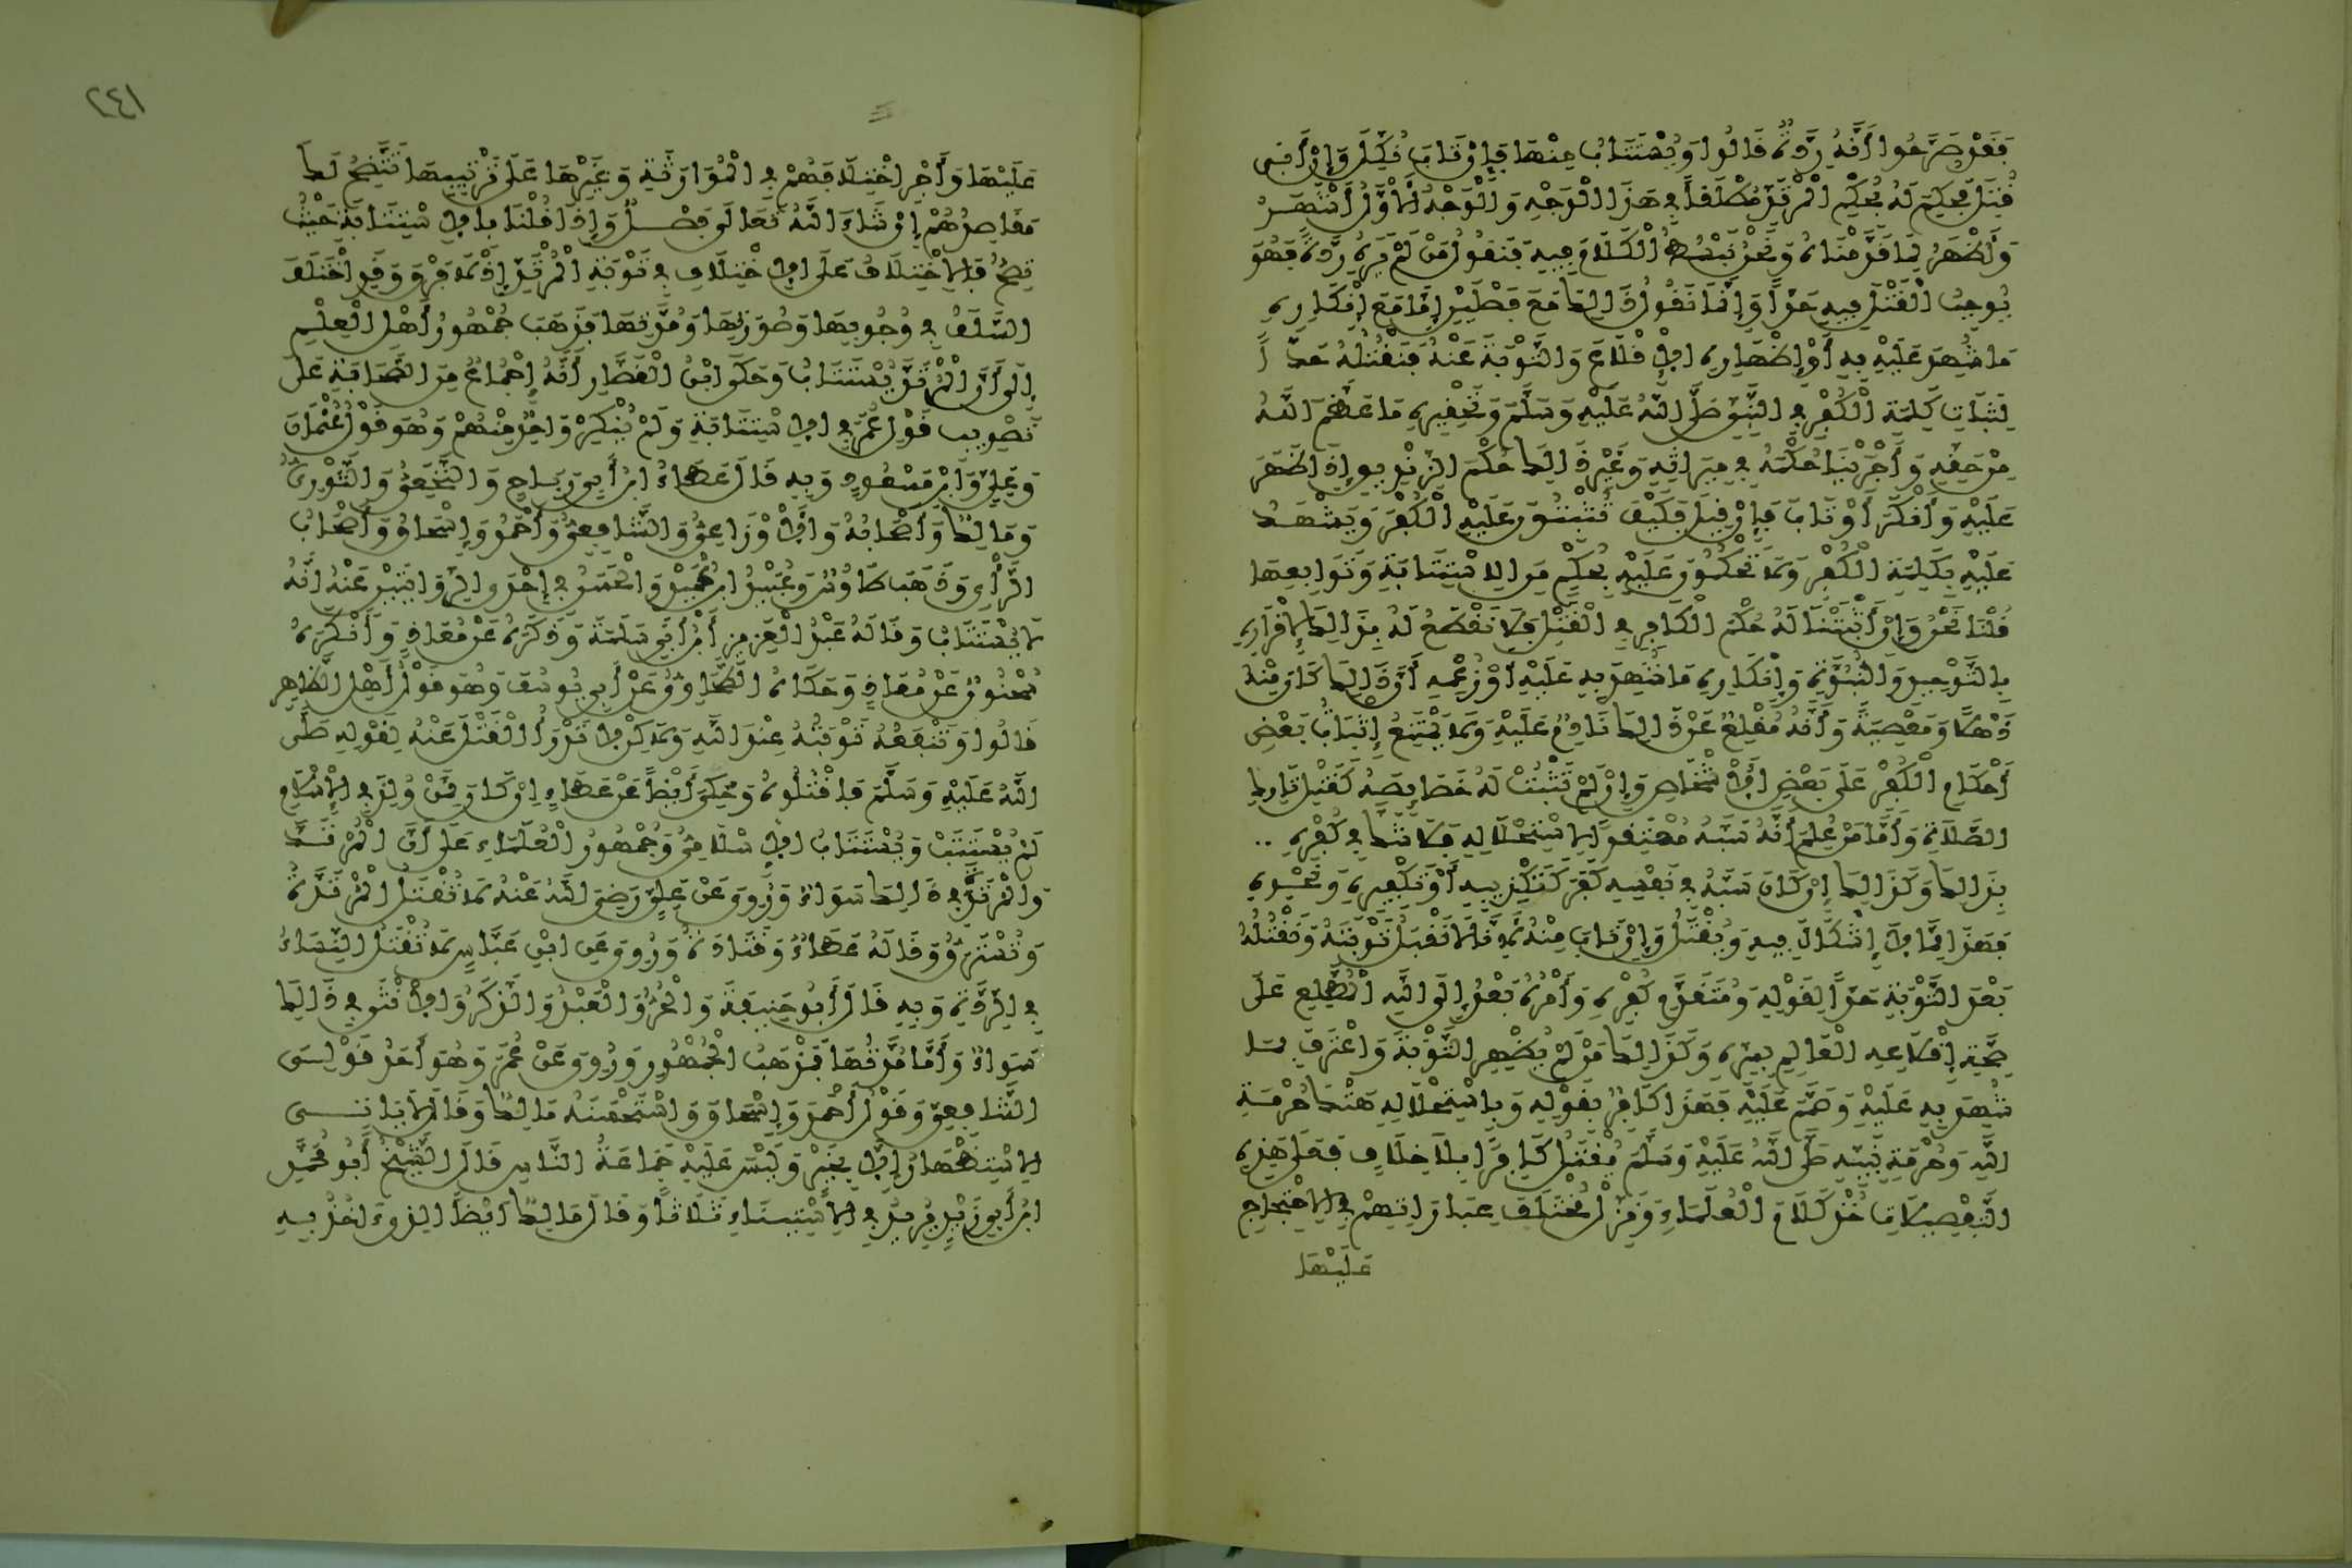 فَقَدْ صَرَّحُوا أَنَّهُ رِدَّةٌ قَالُوا وَيُسْتَتَابُ مِنْهَا فَإِنْ تَابَ نُكِّلَ وَإِنْ أَبَى
قُتِلَ فَحَكَمَ لَهُ بِحُكْمِ الْمُرْتَدِّ مُطْلَقاً فِي هَذَا الْوَجْهِ وَالْوَجْهُ الْأَوَّلُ أَشْهَرُ
وَأَظْهَرُ لِمَا قَدَّمْنَاهُ وَنَحْنُ نَبْسُطُ الْكَلَامَ فِيهِ فَنَقُولُ مَنْ لَمْ يَرَهُ رِدَّةً فَهُوَ
يُوجِبُ الْقَتْلَ فِيهِ حَدّاً وَإِنَّمَا نَقُولُ ذَالِكَ مَعَ فَصْلَيْنِ إِمَّا مَعَ إِنْكَارِهِ
مَا شُهِدَ عَلَيْهِ بِهِ أَوْ إِظْهَارِهِ الْإِقْلَاعَ وَالتَّوْبَةَ عَنْهُ فَنَقْتُلُهُ حَدّاً
لِثَبَاتِ كَلِمَةِ الْكُفْرِ فِي النَّبِيِّ صَلَّى اللَّهُ عَلَيْهِ وَسَلَّمَ وَتَحْقِيرِهِ مَا عَظَّمَ اللَّهُ
مِنْ حَقِّهِ وَأَجْرَيْنَا حُكْمَهُ فِي مِيرَاثِهِ وَغَيْرِ ذَالِكَ حُكْمَ الزِّنْدِيقِ إِذَا ظُهِرَ
عَلَيْهِ وَأَنْكَرَ أَوْ تَابَ فَإِنْ قِيلَ فَكَيْفَ تُثْبِتُونَ عَلَيْهِ الْكُفْرَ وَيُشْهَدُ
عَلَيْهِ بِكَلِمَةِ الْكُفْرِ وَلَا تَحْكُمُونَ عَلَيْهِ بِحُكْمِهِ مِنَ الِاسْتِتَابَةِ وَتَوَابِعِهَا
قُلْنَا نَحْنُ وَإِنْ أَثْبَتْنَا لَهُ حُكْمَ الْكَافِرِ فِي الْقَتْلِ فَلَا نَقْطَعُ لَهُ بِذَالِكَ لِإِقْرَارِهِ
بِالتَّوْحِيدِ وَالنُّبُوَّةِ وَإِنْكَارِهِ مَا شُهِدَ بِهِ عَلَيْهِ أَوْ زَعْمِهِ أَنَّ ذَالِكَ كَانَ مِنْهُ
وَهَلاً وَمَعْصِيَةً وَأَنَّهُ مُقْلِعٌ عَنْ ذَالِكَ نَادِمٌ عَلَيْهِ وَلَا يَمْتَنِعُ إِثْبَاتُ بَعْضِ
أَحْكَامِ الْكُفْرِ عَلَى بَعْضِ الْأَشْخَاصِ وَإِنْ لَمْ تَثْبُتْ لَهُ خَصَائِصُهُ كَقَتْلِ تَارِكِ
الصَّلَاةِ وَأَمَّا مَنْ عُلِمَ أَنَّهُ سَبَّهُ مُعْتَقِداً لِاسْتِحْلَالِهِ فَلَا شَكَّ فِي كُفْرِهِ
بِذَالِكَ وَكَذَالِكَ إِنْ كَانَ سَبُّهُ فِي نَفْسِهِ كُفْرٌ كَتَكْذِيبِهِ أَوْ تَكْفِيرِهِ وَنَحْوِهِ
فَهَذَا مِمَّا لَا إِشْكَالَ فِيهِ وَيُقْتَلُ وَإِنْ تَابَ مِنْهُ لِأَنَّا لَا نَقْبَلُ تَوْبَتَهُ وَنَقْتُلُهُ
بَعْدَ التَّوْبَةِ حَدّاً لِقَوْلِهِ وَمُتَقَدَّمِ كُفْرِهِ وَأَمْرُهُ بَعْدُ إِلَى اللَّهِ الْمُطَّلِعِ عَلَى
صِحَّةِ إِقْلَاعِهِ الْعَالِمِ بِسِرِّهِ وَكَذَالِكَ مَنْ لَمْ يُظْهِرِ التَّوْبَةَ وَاعْتَرَفَ بِمَا
شُهِدَ بِهِ عَلَيْهِ وَصَمَّمَ عَلَيْهِ فَهَذَا كَافِرٌ بِقَوْلِهِ وَبِاسْتِحْلَالِهِ هَتْكَ حُرْمَةِ
اللَّهِ وَحُرْمَةِ نَبِيِّهِ صَلَّى اللَّهُ عَلَيْهِ وَسَلَّمَ يُقْتَلُ كَافِراً بِلَا خِلَافٍ فَعَلَى هَذِهِ
التَّفْصِيلَاتِ خُذْ كَلَامَ الْعُلَمَاءِ وَنَزِّلْ مُخْتَلِفَ عِبَارَاتِهِمْ فِي الِاحْتِجَاجِ
عَلَيْهَا
٢٤١
عَلَيْهَا وَأَجْرِ اخْتِلَافَهُمْ فِي الْمُوَارَثَةِ وَغَيْرِهَا عَلَى تَرْتِيبِهَا تَتَّضِحْ لَكَ
مَقَاصِدُهُمْ إِنْ شَاءَ اللَّهُ تَعَالَى فَصْلٌ وَإِذَا قُلْنَا بِالِاسْتِتَابَةِ حَيْثُ
تَصِحُّ فَالِاخْتِلَافُ عَلَى الِاخْتِلَافِ فِي تَوْبَةِ الْمُرْتَدِّ إِذْ لَا فَرْقَ وَقَدِ اخْتَلَفَ
السَّلَفُ فِي وُجُوبِهَا وَصُورَتِهَا وَمُدَّتِهَا فَذَهَبَ جُمْهُورُ أَهْلِ الْعِلْمِ
إِلَى أَنَّ الْمُرْتَدَّ يُسْتَتَابُ وَحَكَى ابْنُ الْقَصَّارِ أَنَّهُ إِجْمَاعٌ مِنَ الصَّحَابَةِ عَلَى
تَصْوِيبِ قَوْلِ عُمَرَ فِي الِاسْتِتَابَةِ وَلَمْ يُنْكِرْهُ وَاحِدٌ مِنْهُمْ وَهُوَ قَوْلُ عُثْمَانَ
وَعَلِيٍّ وَابْنِ مَسْعُودٍ وَبِهِ قَالَ عَطَاءُ ابْنُ أَبِي رَبَاحٍ وَالنَّخَعِيُّ وَالثَّوْرِيُّ
وَمَالِكٌ وَأَصْحَابُهُ وَالْأَوْزَاعِيُّ وَالشَّافِعِيُّ وَأَحْمَدُ وَإِسْحَاقُ وَأَصْحَابُ
الرَّأْيِ وَذَهَبَ طَاوُسُ وَعُبَيْدُ ابْنُ عُمَيْرٍ وَالْحَسَنُ فِي إِحْدَى الرِّوَايَتَيْنِ عَنْهُ أَنَّهُ
لَا يُسْتَتَابُ وَقَالَهُ عَبْدُ الْعَزِيزِ ابْنُ أَبِي سَلَمَةَ وَذَكَرَهُ عَنْ مُعَاذٍ وَأَنْكَرَهُ
سُحْنُونٌ عَنْ مُعَاذٍ وَحَكَاهُ الطَّحَاوِيُّ عَنْ أَبِي يُوسُفَ وَهُوَ قَوْلُ أَهْلِ الظَّاهِرِ
قَالُوا وَتَنْفَعُهُ تَوْبَتُهُ عِنْدَ اللَّهِ وَلَاكِنْ لَا تَدْرَأُ الْقَتْلَ عَنْهُ لِقَوْلِهِ صَلَّى
اللَّهُ عَلَيْهِ وَسَلَّمَ فَاقْتُلُوهُ وَحُكِيَ أَيْضاً عَنْ عَطَاءٍ إِنْ كَانَ مِمَّنْ وُلِدَ فِي الْإِسْلَامِ
لَمْ يُسْتَتَبْ وَيُسْتَتَابُ الْإِسْلَامِيُّ وَجُمْهُورُ الْعُلَمَاءِ عَلَى أَنَّ الْمُرْتَدَّ
وَالْمُرْتَدَّةَ فِي ذَالِكَ سَوَاءٌ وَرُوِيَ عَنْ عَلِيٍّ رَضِيَ اللَّهُ عَنْهُ لَا تُقْتَلُ الْمُرْتَدَّةُ
وَتُسْتَرَقُّ وَقَالَهُ عَطَاءٌ وَقَتَادَةُ وَرُوِيَ عَنِ ابْنِ عَبَّاسٍ لَا تُقْتَلُ النِّسَاءُ
فِي الرِّدَّةِ وَبِهِ قَالَ أَبُو حَنِيفَةَ وَالْحُرُّ وَالْعَبْدُ وَالذَّكَرُ وَالْأُنْثَى فِي ذَالِكَ
سَوَاءٌ وَأَمَّا مُدَّتُهَا فَمَذْهَبُ الْجُمْهُورِ وَرُوِيَ عَنْ عُمَرَ وَهُوَ أَحَدُ قَوْلَيِ
الشَّافِعِيِّ وَقَوْلُ أَحْمَدَ وَإِسْحَاقَ وَاسْتَحْسَنَهُ مَالِكٌ وَقَالَ لَا يَاتِي
الِاسْتِظْهَارُ إِلَّا بِخَيْرٍ وَلَيْسَ عَلَيْهِ جَمَاعَةُ النَّاسِ قَالَ الشَّيْخُ أَبُو مُحَمَّدِ
ابْنُ أَبِي زَيْدٍ يُرِيدُ فِي الِاسْتِينَاءِ ثَلَاثاً وَقَالَ مَالِكٌ أَيْضاً الَّذِي ءَاخُذُ بِهِ